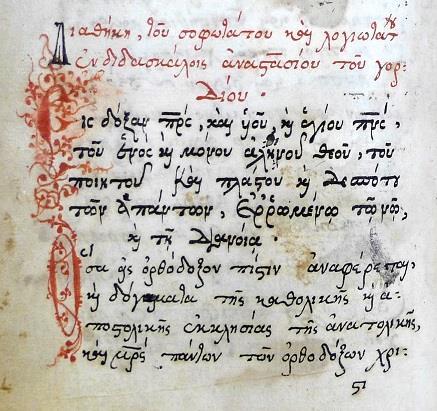 Διαθήκη, τοῦ σοφωτάτου κ(αὶ) λογιωτάτ(ου)
ἐν διδασκάλοις ἀναστασίου τοῦ γορ-
δίου.
Εἰς δόξαν π(ατ)ρὸς, καὶ υἱοῦ, κ(αὶ) ἁγίου πν(εύματο)ς,
τοῦ ἑνὸς κ(αὶ) μόνου ἀληθινοῦ θεοῦ, τοῦ
ποιητοῦ κ(αὶ) πλάστου κ(αὶ) δεσπότου
τῶν ἁπάντων, ἐῤῥωμένω τῷ νῷ,
κ(αὶ) τῇ διανοίᾳ.
Ὅσα εἰς ὀρθόδοξον πίστιν ἀναφέρεται,
κ(αὶ) δόγματα τῆς καθολικῆς κ(αὶ) ἀ-
ποστολικῆς ἐκκλησίας τῆς ἀνατολικῆς,
κ(αὶ) μ(ητ)ρὸς πάντων τῶν ὀρθοδόξων χρι-
ςι